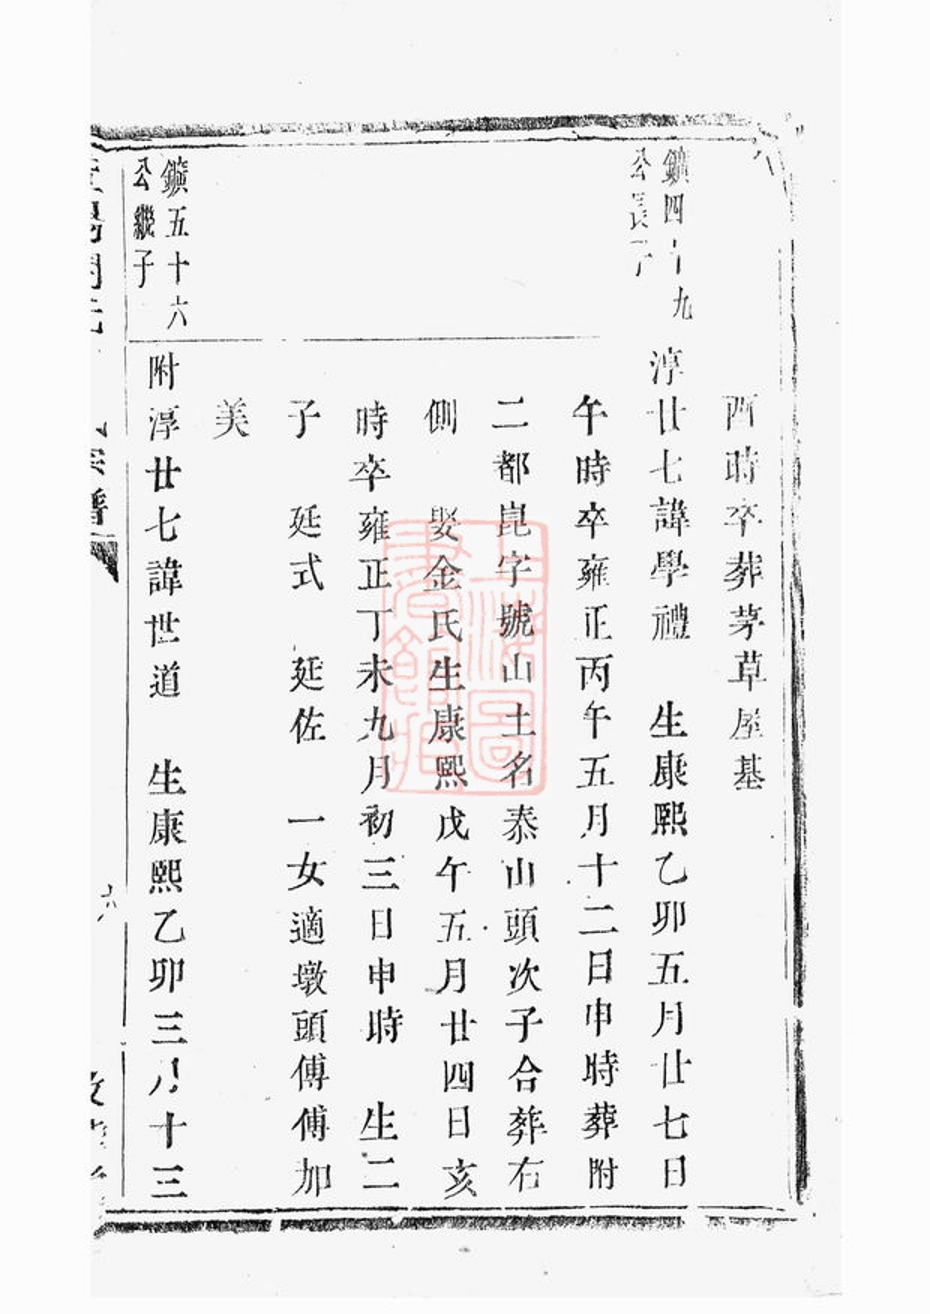 酉時卒葬茅草屋基
鑛四十九
公長子
淳廿七諱學禮　生康熙乙卯五月廿七日
午時卒雍正丙午五月十二日申時葬附
二都崑字號山土名泰山頭次子合葬右
側　娶金氏生康熙戊午五月廿四日亥
時卒雍正丁未九月初三日申時　生二
子　延式　延佐　一女適墩頭傅傅加
美
鑛五十六
公繼子
附淳廿七諱世道　生康熙乙卯三月十三
宗譜
六
上海圖
書館藏